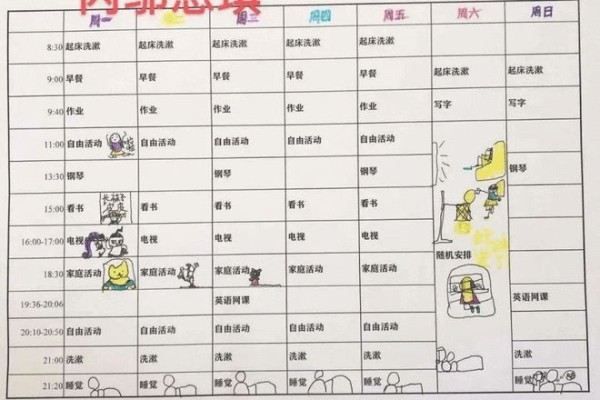 周一 周二 周三 周四 周五 周六 周日
8:30 起床洗漱 起床洗漱 起床洗漱 起床洗漱 起床洗漱
9:00 早餐 早餐 早餐 早餐 早餐 起床洗漱 起床洗漱
9:40 作业 作业 作业 作业 作业 写字 写字
11:00 自由活动 自由活动 自由活动 自由活动 自由活动
13:30 钢琴 钢琴 钢琴 钢琴
15:00 看书 长袜子 看书 看书 看书 看书
皮皮
16:00-17:00 电视 电视 电视 电视 电视
随机安排
18:30 家庭活动 家庭活动 家庭活动 家庭活动 家庭活动
19:36-20:06 英语网课 英语网课
20:10-20:50 自由活动 自由活动 自由活动 自由活动 自由活动
21:00 洗漱 洗漱 洗漱 洗漱 洗漱 洗漱
21:20 睡觉 睡觉 睡觉 睡觉 睡觉 睡觉